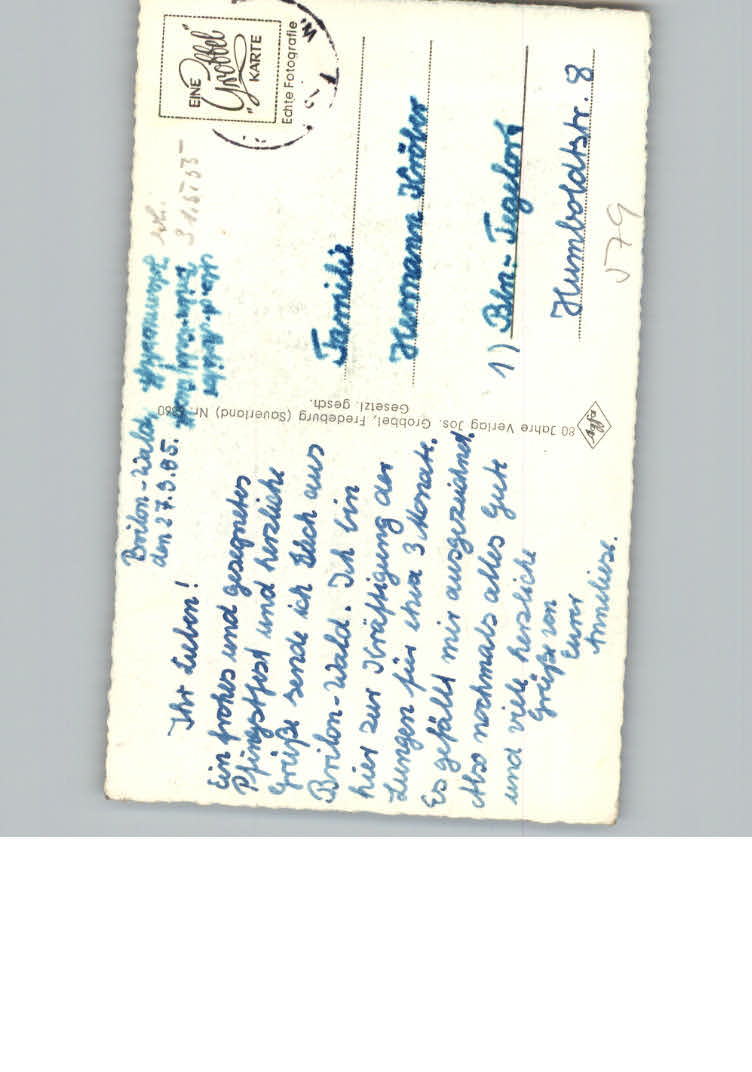 Brilon-Wald,
den 27.5.55.
Ihr Lieben!
Ein frohes und gesegnetes
Pfingstfest und herzliche
Grüße sende ich Euch aus
Brilon-Wald. Ich bin
hier zur Kräftigung der
Lungen für etwa 3 Monate.
Es gefällt mir ausgezeichnet.
Also nochmals alles Gute
und viele herzliche
Grüße von
Eurer
Anneliese.
80 Jahre Verlag Jos. Grobbel, Fredeburg (Sauerland) Nr.
Gesetzl. gesch.
Agfa
EINE
„Grobbel"
KARTE
Echte Fotografie
erh.
31.5.55
Familie
Hermann Kröber
1) Bln.-Tegelort
Humboldtstr. 8
579